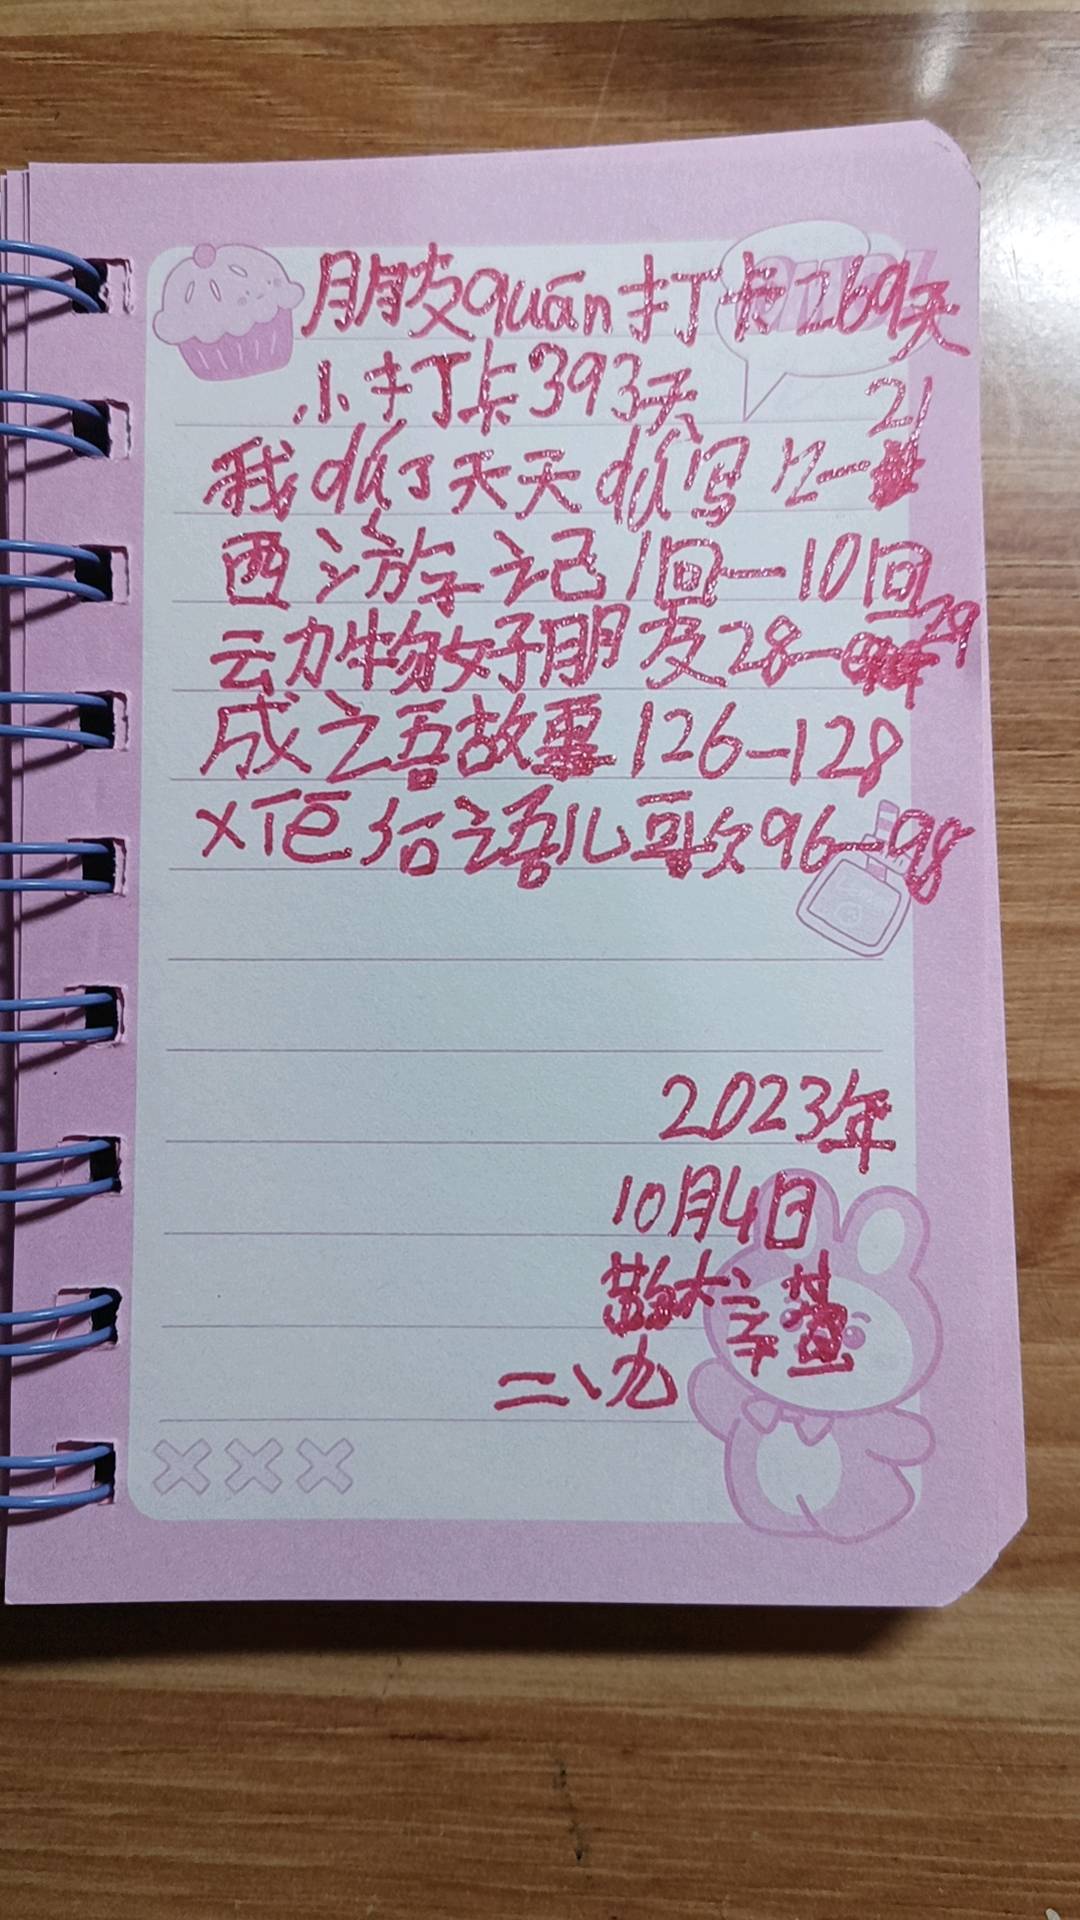 朋友quān打卡269天
小打卡393天
我dú了天天dú写12—21
西游记1回—10回
动物好朋友28—29
成语故事126—128
对韵歌96—98
2023年
10月4日
二、九